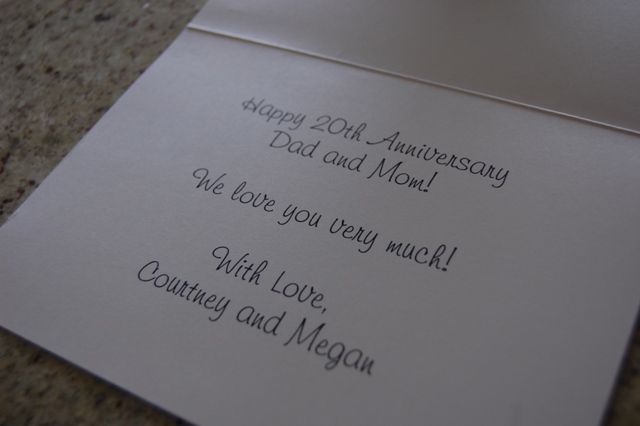 Happy 20th Anniversary
Dad and Mom!
We love you very much!
With Love,
Courtney and Megan